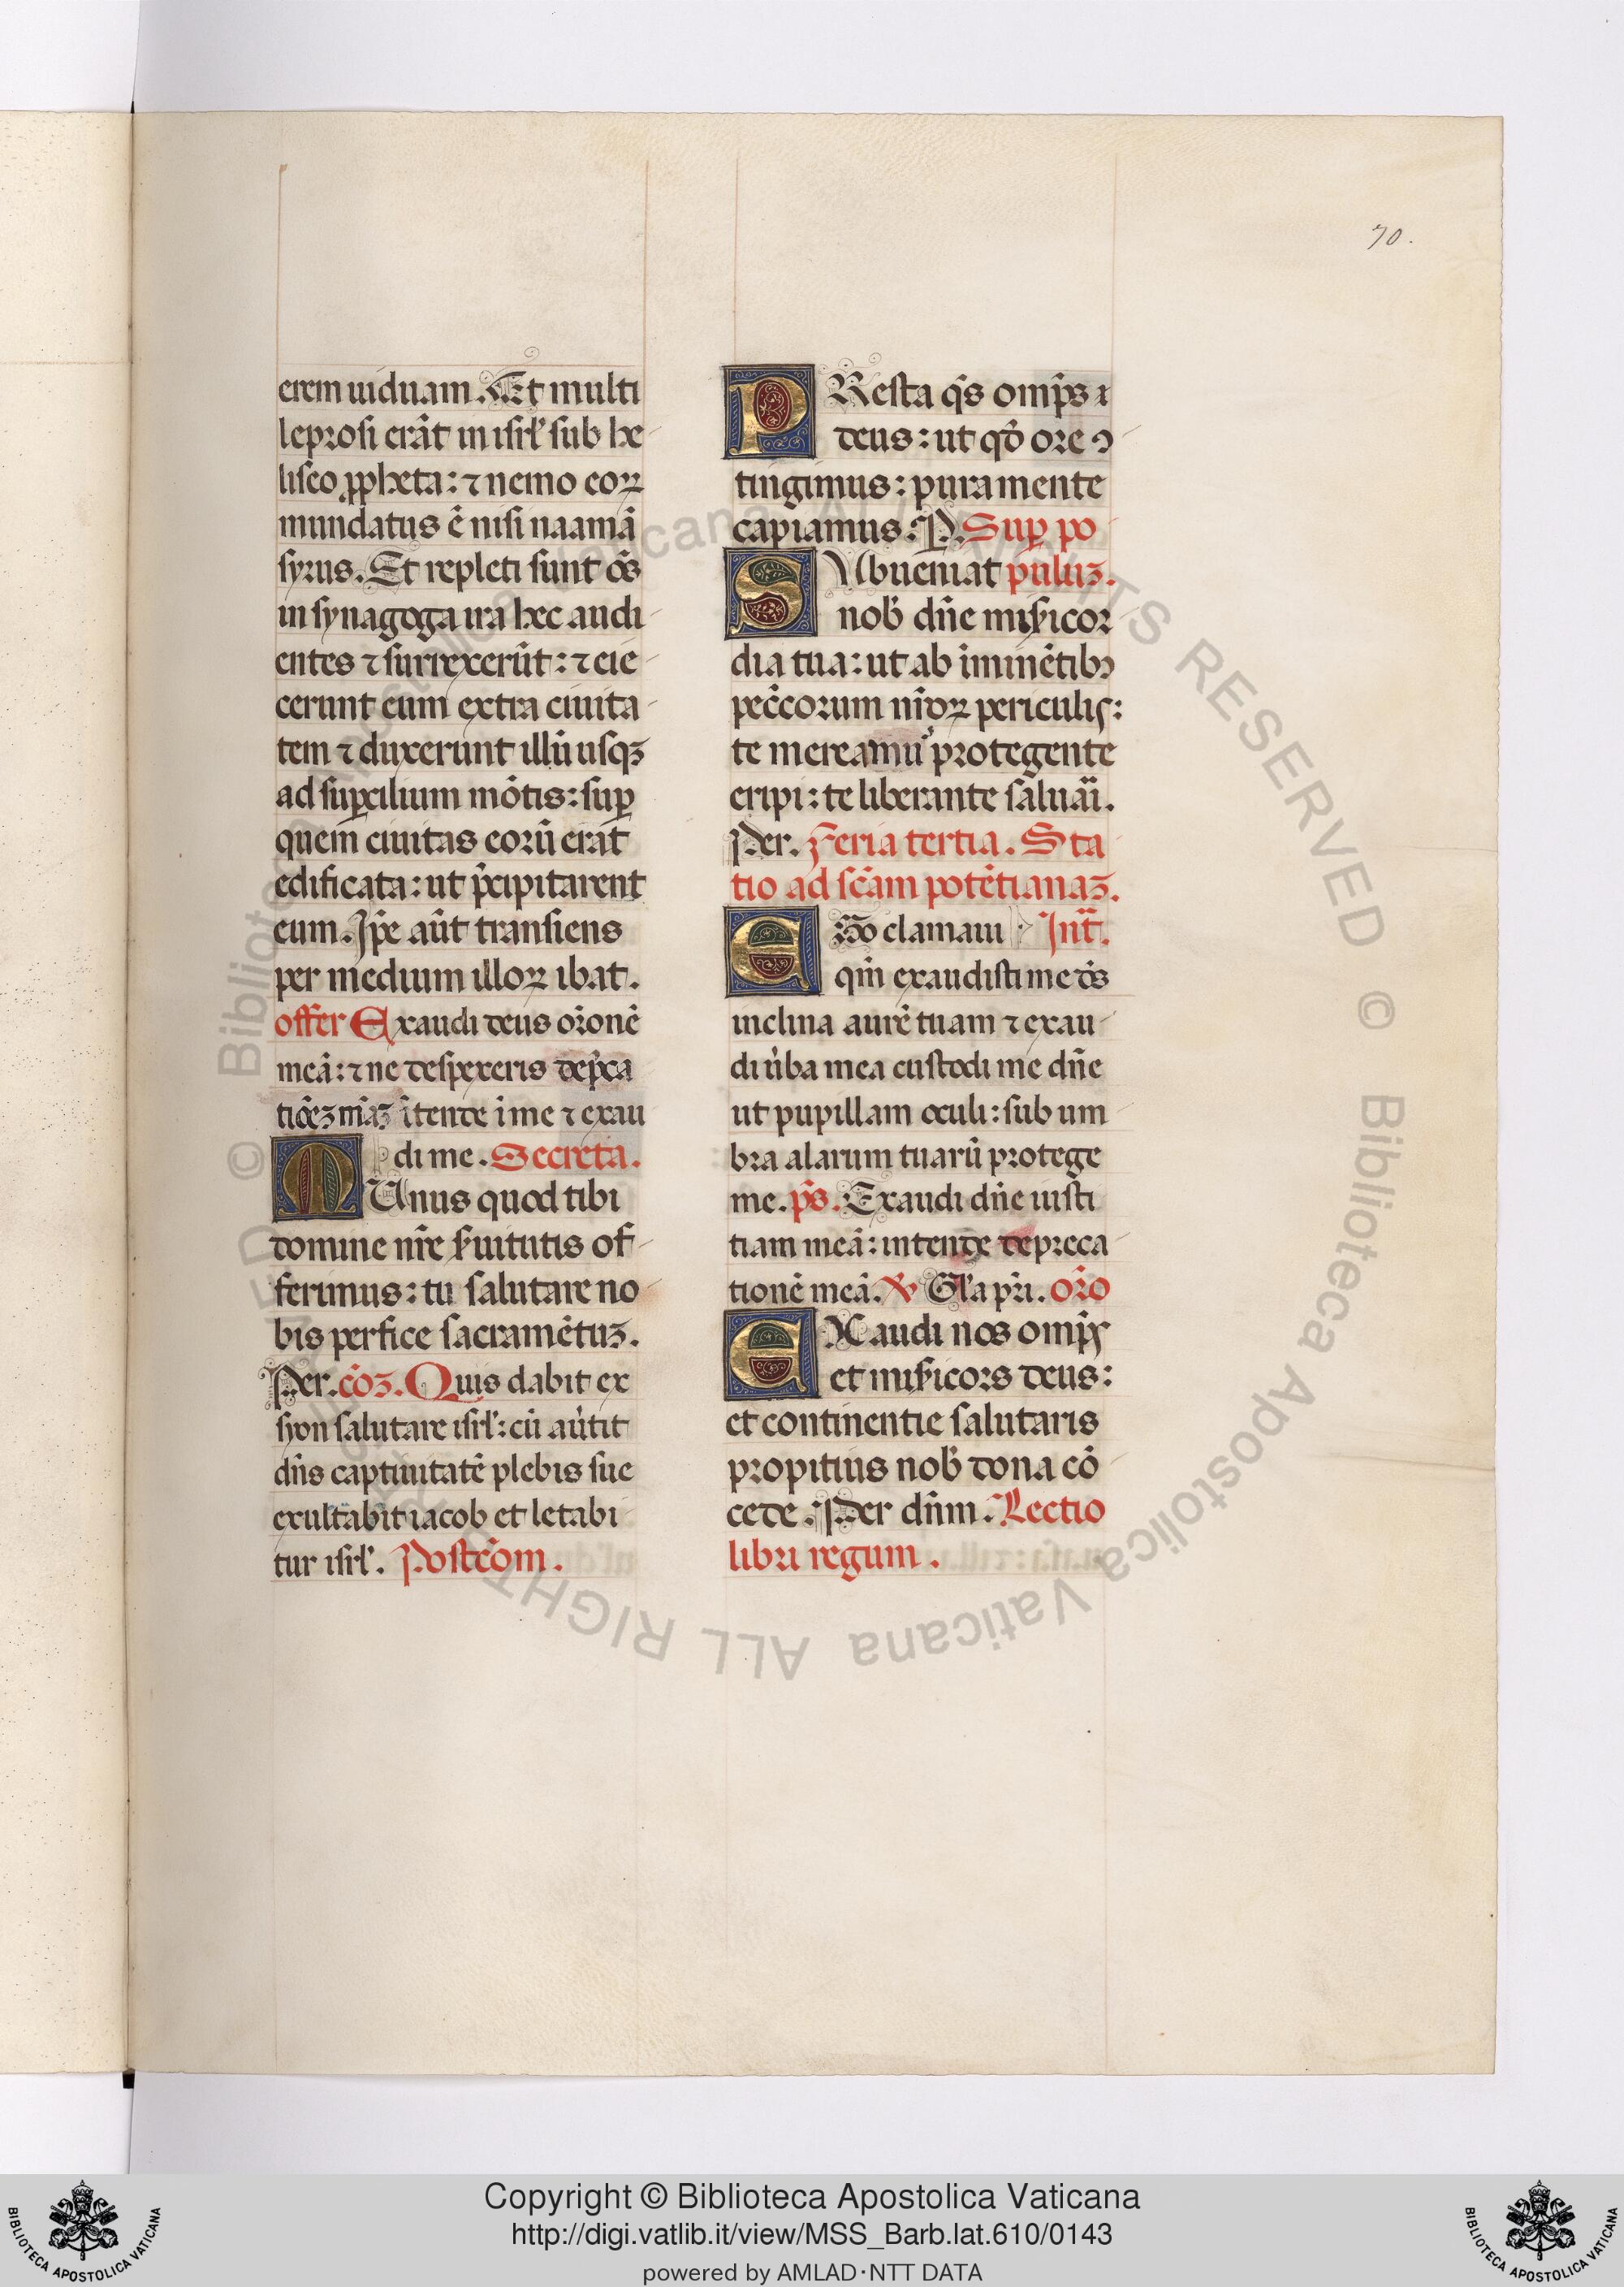 70.
erem uiduam. Et multi
leprosi erāt in isrl' sub he
liseo ꝓpheta: ⁊ nemo eoꝝ
mundatus ē nisi naamā
syrus. Et repleti sunt oēs
in synagoga ira hec audi
entes ⁊ surrexerūt: ⁊ eie
cerunt eum extra ciuita
tem ⁊ duxerunt illū usqꝫ
ad suꝑcilium mōtis: suꝑ
quem ciuitas eorū erat
edificata: ut p̄cipitarent
eum. Ip̄e aūt transiens
per medium illoꝝ ibat.
offer Exaudi deus or̄onē
meā: ⁊ ne despexeris dep̄ca
tiōeꝫ mā ītende ī me ⁊ exau
di me. Secreta.
MUnus quod tibi
domine nr̄e s̓uitutis of
ferimus: tu salutare no
bis perfice sacramētuꝫ.
Per. cōꝫ. Quis dabit ex
syon salutare isrl': cū au̓tit
dn̄s captiuitatē plebis sue
exultabit iacob et letabi
tur isrl'. Postcōm.
PResta q̄s omp̄s ⁊
deus: ut qd̄ ore ꝯ
tingimus: pura mente
capiamus. P. Suꝑ po
SUbueniat puluꝫ.
nob̓ dn̄e mis̓icor
dia tua: ut ab iminētibꝰ
pec̄corum nr̄oꝝ periculis:
te mereamu᷒ protegente
eripi: te liberante saluāi.
Per. Feria tertia. Sta
tio ad sc̄am potētianaꝫ.
EGo clamaui Int̄.
qm̄ exaudisti me ds̄
inclina aurē tuam ⁊ exau
di u̓ba mea custodi me dn̄e
ut pupillam oculi: sub um
bra alarum tuarū protege
me. p̄s. Exaudi dn̄e iusti
tiam meā: intende depreca
tionē meā. ℣ Gl'a pr̄i. or̄o
EXaudi nos omp̄s
et mis̓icors deus:
et continentie salutaris
propitius nob̓ dona cō
cede. Per dn̄m. Lectio
libri regum.
© Biblioteca Apostolica Vaticana ALL RIGHTS RESERVED © Biblioteca Apostolica Vaticana ALL RIGHTS RESERVED
Copyright © Biblioteca Apostolica Vaticana
http://digi.vatlib.it/view/MSS_Barb.lat.610/0143
powered by AMLAD·NTT DATA
BIBLIOTECA APOSTOLICA VATICANA
BIBLIOTECA APOSTOLICA VATICANA